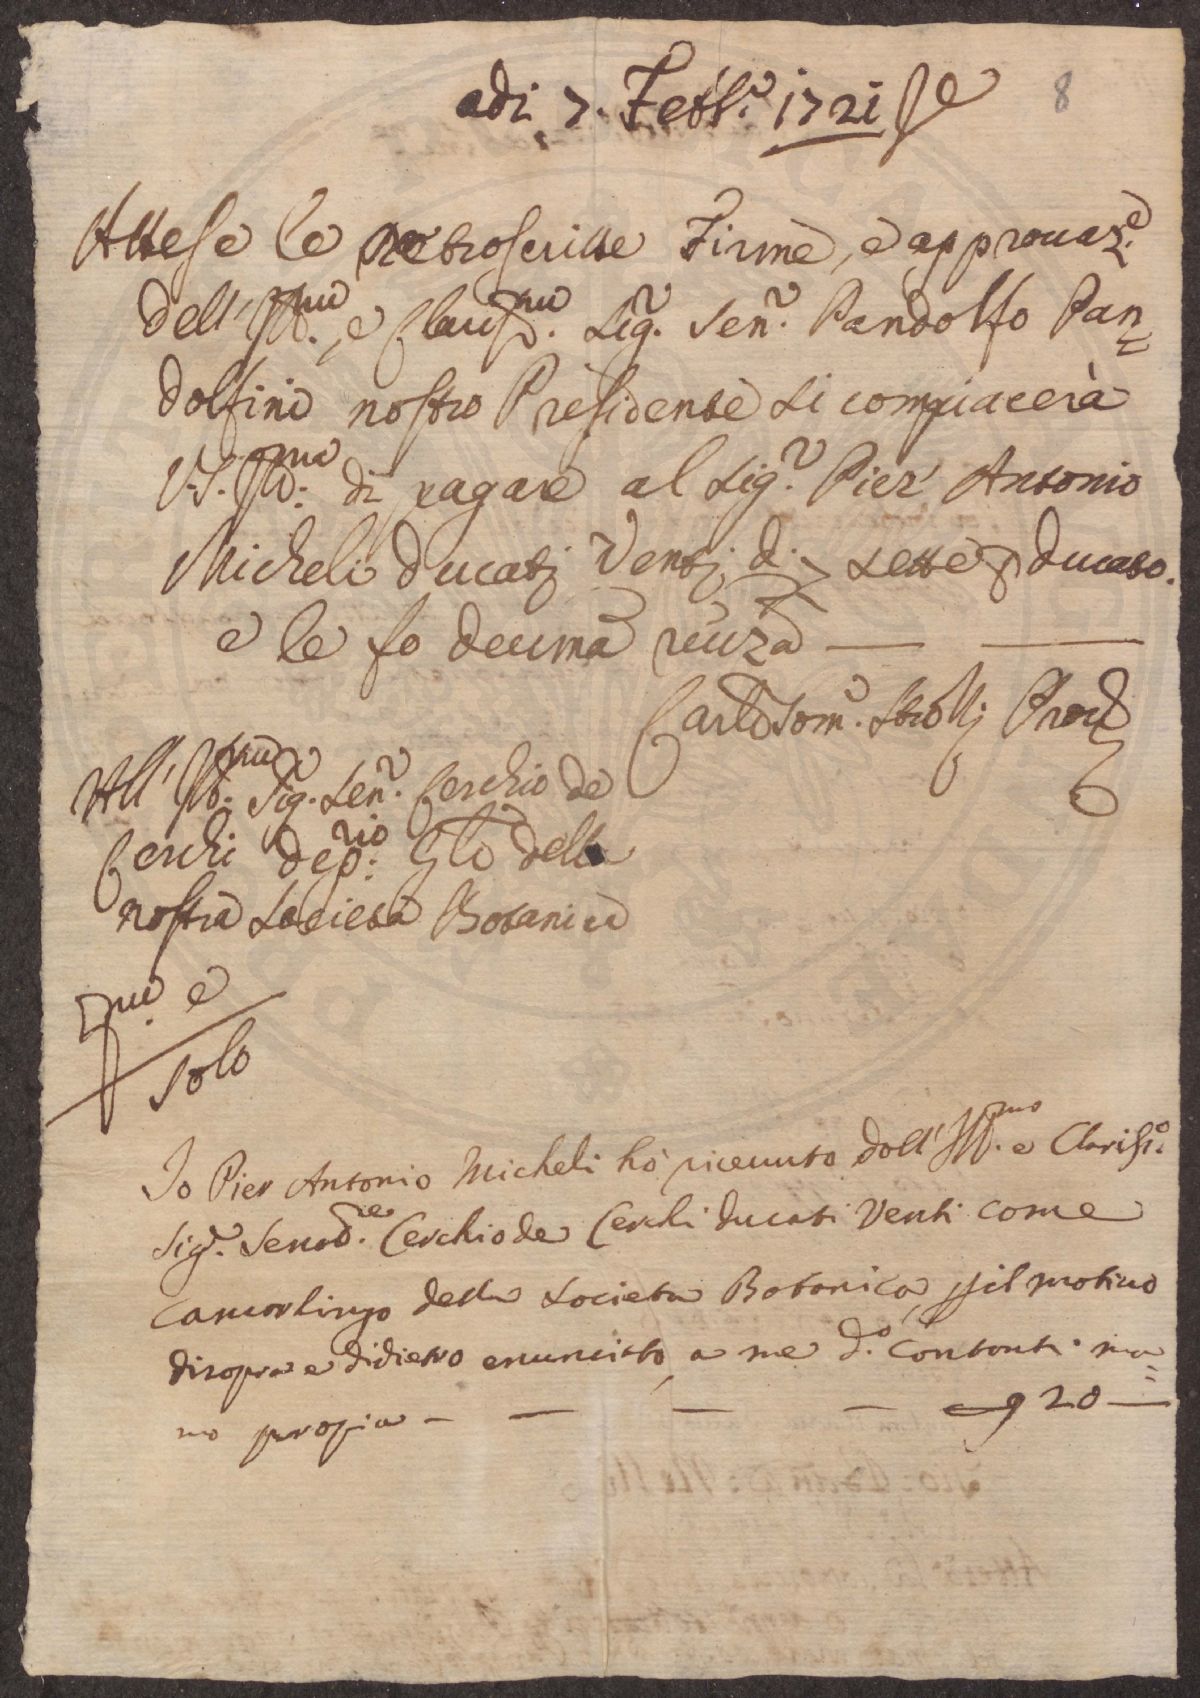 adi 7. Febb.o 1721
8
Attese le retroscritte Firme, e approvaz.e
dell' Ill.mo, e Clariss.mo Sig.r Sen.r Pandolfo Pan=
dolfini nostro Presidente si compiacerà
V.S. Ill.ma di pagare al Sig.r Pier' Antonio
Micheli ducati Venti di 7 sette ducato.
e le fo decima
Carlo Tom.o Strozzi
All' Ill.mo Sig.r Sen.r Cerchio de
Cerchi dep.rio della
nostra Società Botanica
e
solo
Io Pier Antonio Micheli hò ricevuto dall' Ill.mo e Clariss.o
Sig.r Senad.re Cerchio de Cerchi ducati Venti come
Camarlingo della Società Botanica, p il motivo
disopra e didietro enunciato, a me d.o Contanti ma=
no propia — — — — 20 —